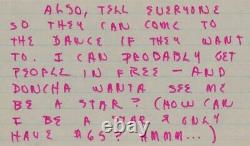 ALSO, TELL EVERYONE
SO THEY CAN COME TO
THE DANCE IF THEY WANT
TO. I CAN PROBABLY GET
PEOPLE IN FREE - AND
DONCHA WANTA SEE ME
BE A STAR? (HOW CAN
I BE A STAR & ONLY
HAVE $65? HMMM...)